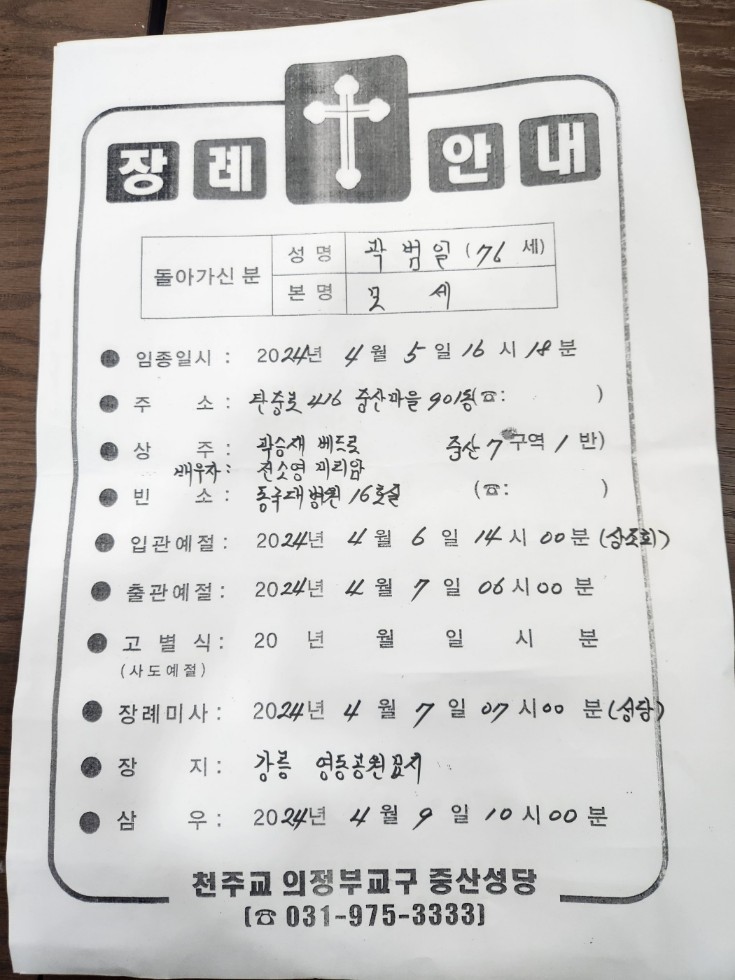 장례 안내
돌아가신 분
성명 곽범일 (76 세)
본명 모세
임종일시 : 2024년 4월 5일 16시 18분
주 소 : 탄중로 416 중산마을 901동(☎: )
상 주 : 곽승재 베드로 중산 7구역 1반)
배우자 : 전소영 미리암
빈 소 : 동국대병원 16호실 (☎: )
입관예절 : 2024년 4월 6일 14시 00분 (상조회)
출관예절 : 2024년 4월 7일 06시 00분
고 별 식 : 20 년 월 일 시 분
(사도예절)
장례미사 : 2024년 4월 7일 07시 00분 (성당)
장 지 : 강릉 영동공원묘지
삼 우 : 2024년 4월 9일 10시 00분
천주교 의정부교구 중산성당
(☎ 031-975-3333)